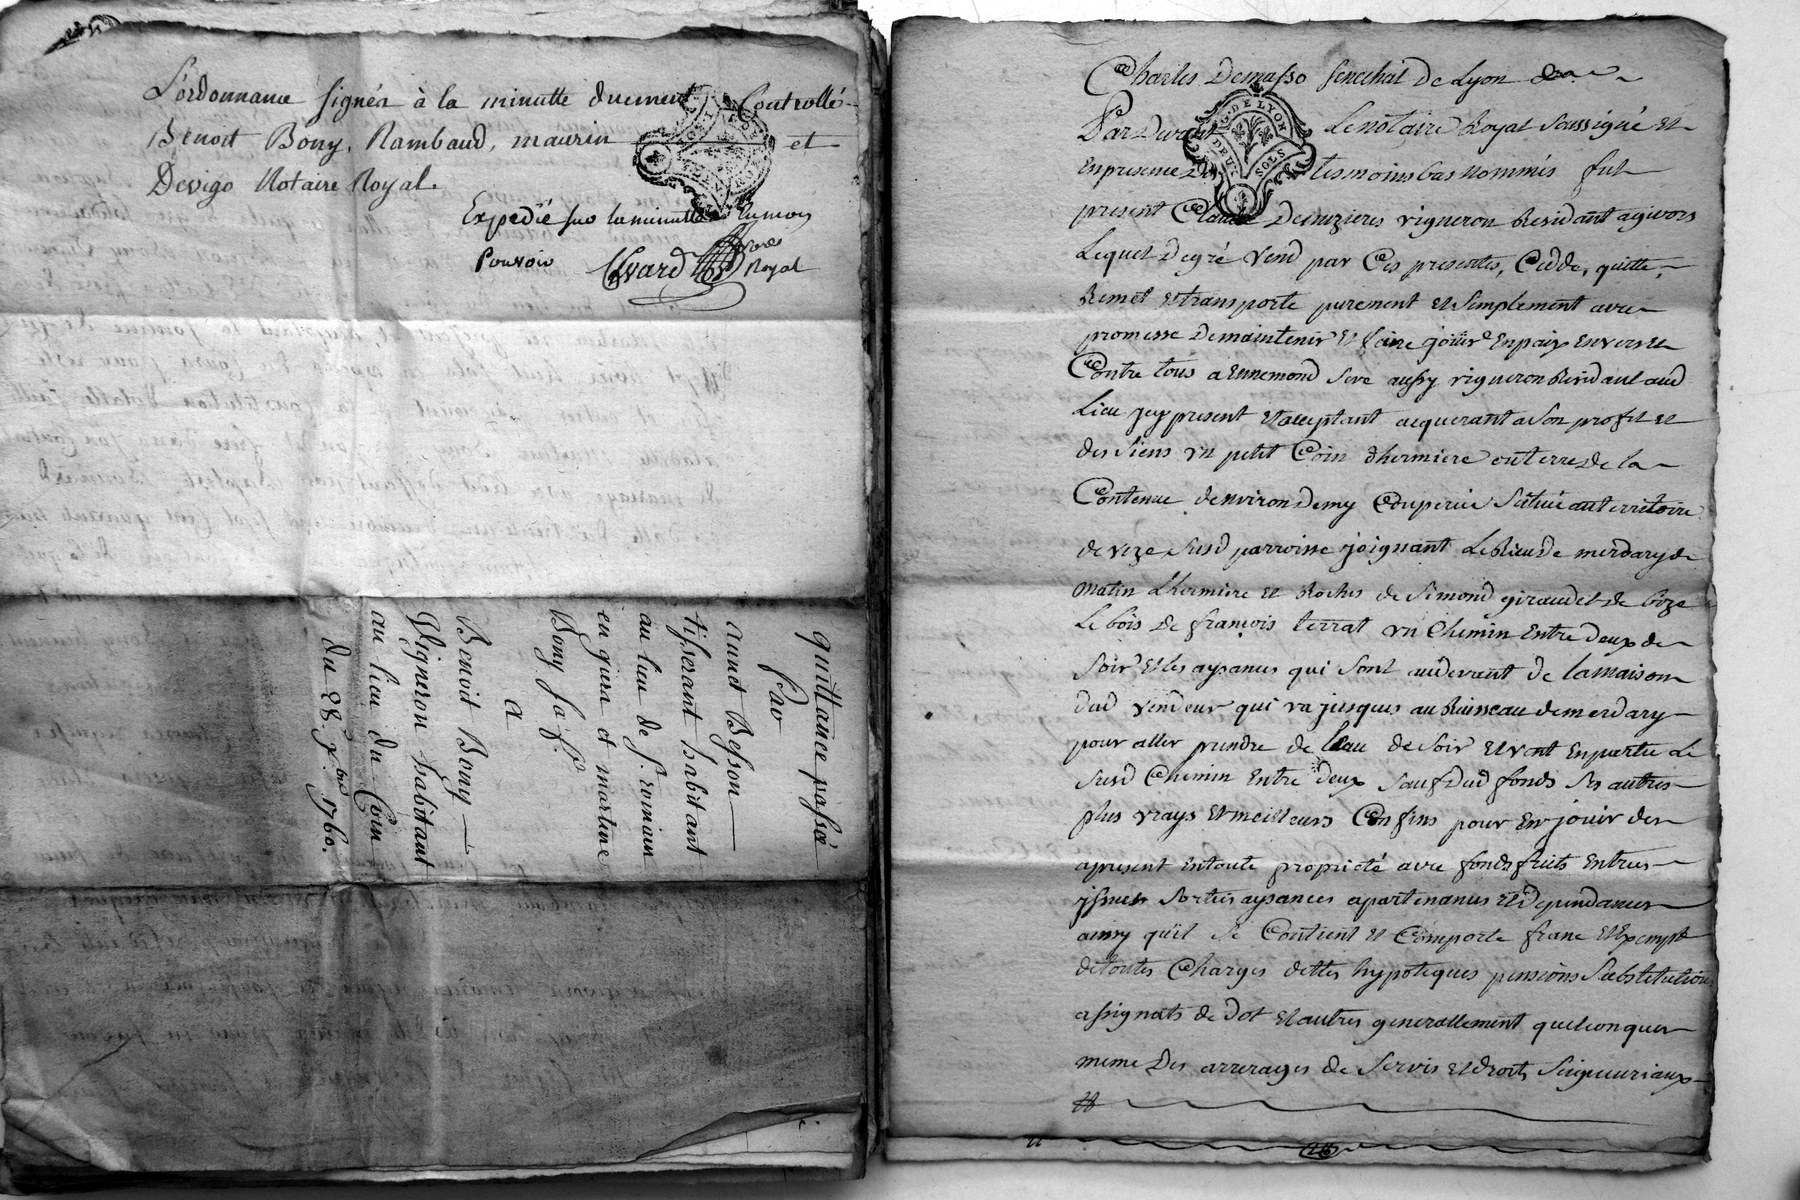 L'ordonnance signés à la minutte duement Controllé
Benoit Bony, Rambaud, maurin et
Devigo Notaire Royal.
Expedié sur la minutte En mon
Pouvoir Evrard Nore Royal
quittance passée
Par
annet Besson
tisserant habitant
au lieu de St. romain
en jura et martine
Bony sa fe.
a
Benoit Bony
Vigneron habitant
au lieu du Coin
du 28. 9bre 1760.
Charles Demasso senechal de Lyon
G. DE LYON
DEUX SOLS
Par Devant Le notaire Royal soussigné Et
En presence De tesmoins bas nommés fut
present Claude Decuzieres vigneron Residant a givors
Lequel De gré vend par Ces presentes, Cedde, quitte,
Remet Et transporte purement Et simplement avec
promesse De maintenir Et faire joüir En paix Envers Et
Contre tous a Ennemond seve aussy vigneron Residant aud
Lieu jcy present Et acceptant acquerant a son profit Et
des siens vn petit Coin d'hermiere ou terre de la
Contenue denviron Demy Couperie Situé au territoire
de veze susd parroisse joignant Le Rieu de merdary de
matin L'hermiere Et Roches de Simond giraud Et de bize
Le bois De françois terrat vn Chemin Entre deux de
soir Et les aysances qui sont au devant de la maison
dud vendeur qui va jusques au Ruisseau de merdary
pour aller prendre de leau de soir Et vent En partie Le
susd Chemin Entre deux sauf Dud fonds ses autres
plus vrays Et meilleurs Confins pour En joüir des
apresent En toute proprieté avec fonds fruits Entrées
jssues sorties aysances apartenances Et Dependances
ainsy qu'il se Contient Et Comporte franc Et Exempt
de toutes Charges dettes hypoteques pensions Substitutions
assignats de dot Et autres generallement quelconques
meme Des arrerages de Servis Et droits Seigneuriaux